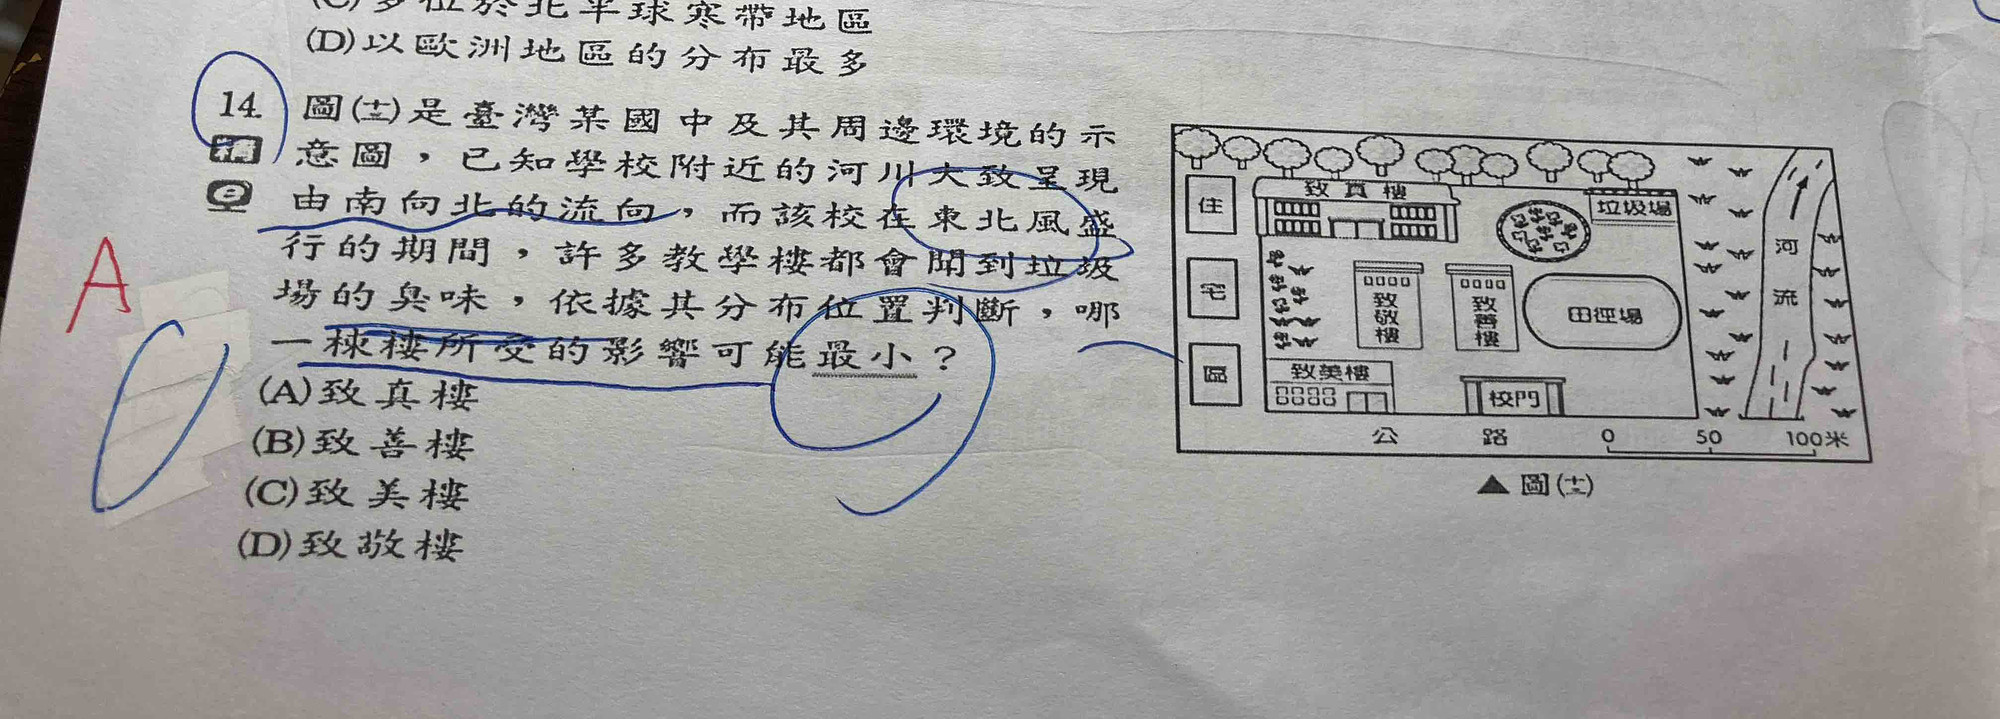 (C)多位於北半球寒帶地區
(D)以歐洲地區的分布最多
14. 圖(十二)是臺灣某國中及其周邊環境的示
意圖，已知學校附近的河川大致呈現
由南向北的流向，而該校在東北風盛
行的期間，許多教學樓都會聞到垃圾
場的臭味，依據其分布位置判斷，哪
一棟樓所受的影響可能最小？
(A)致真樓
(B)致善樓
(C)致美樓
(D)致敬樓
A
住
宅
區
致真樓
垃圾場
河
流
致敬樓
致善樓
田徑場
致美樓
校門
公路
0 50 100米
▲圖(十二)